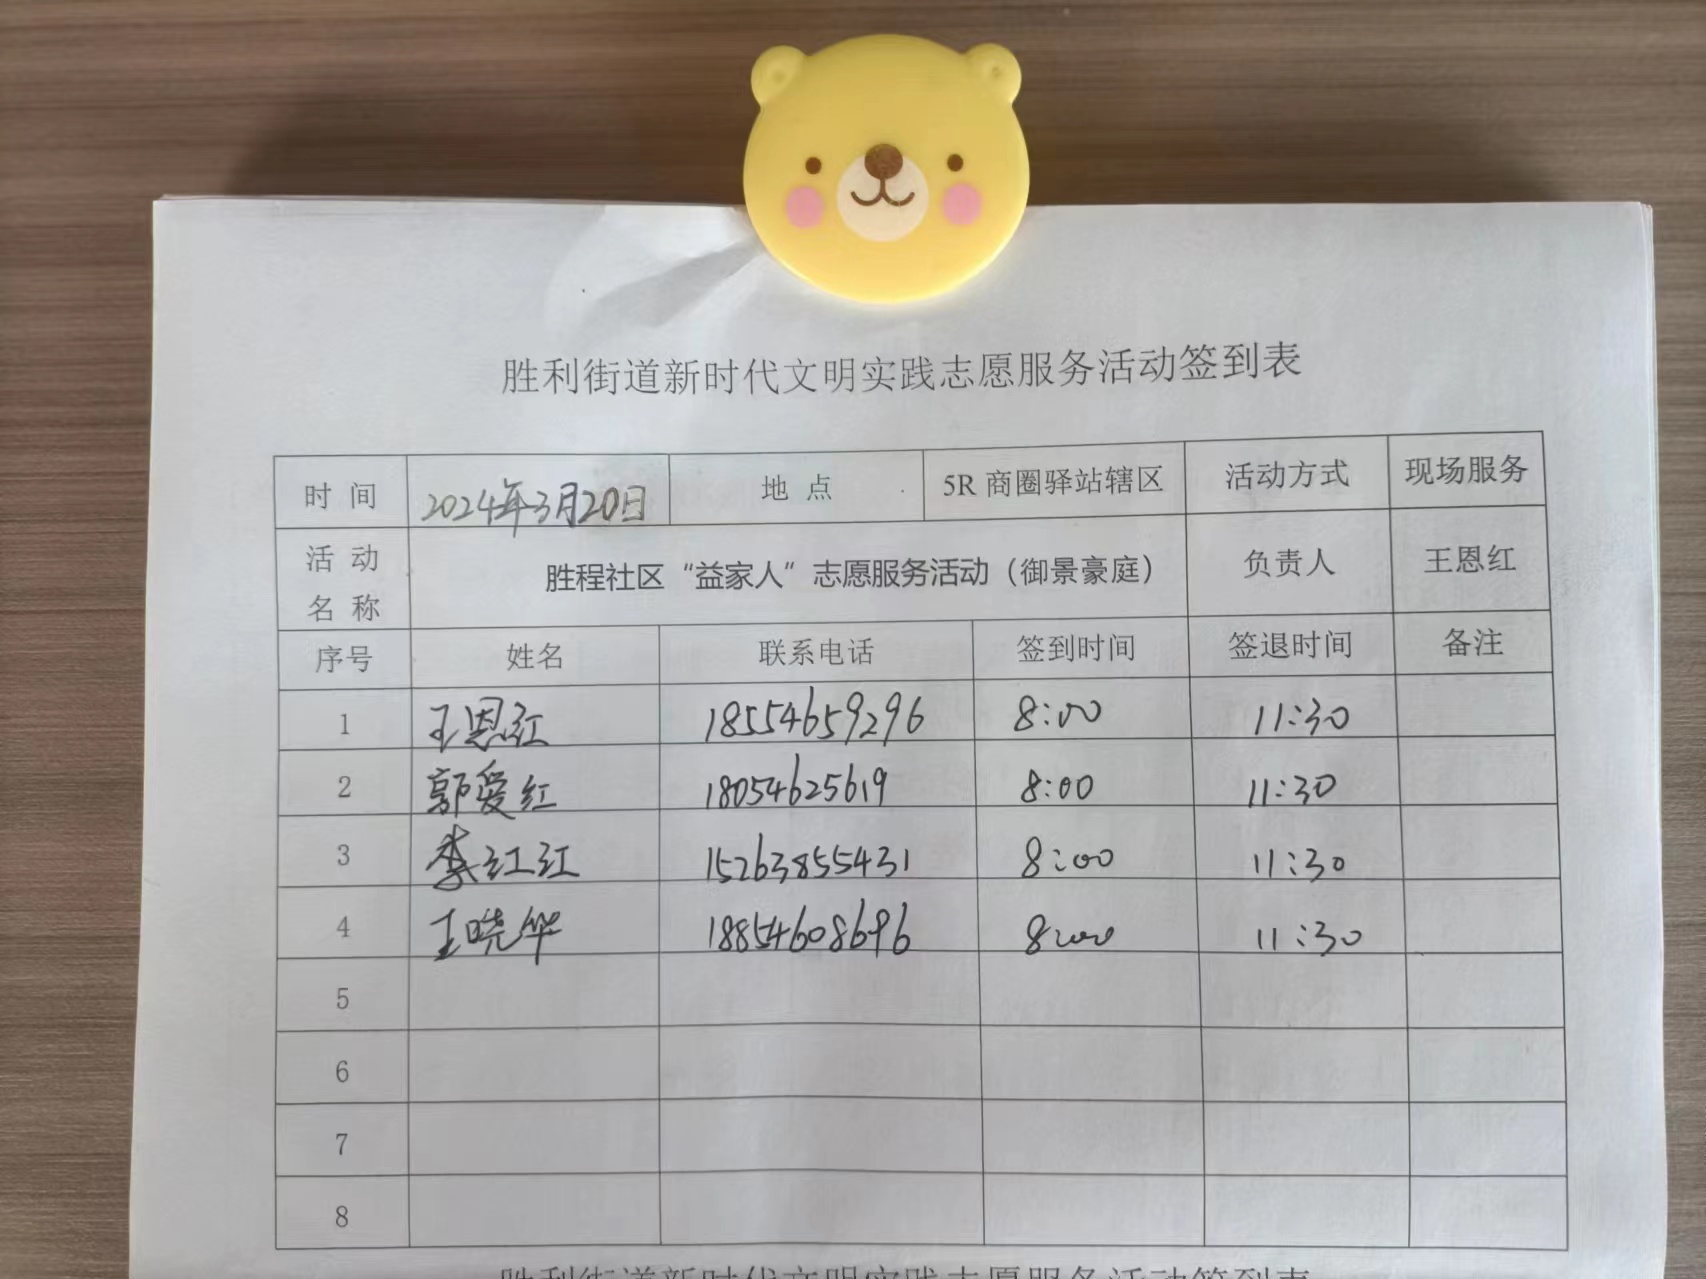 胜利街道新时代文明实践志愿服务活动签到表
时 间 2024年3月20日 地 点 5R 商圈驿站辖区 活动方式 现场服务
活 动 名 称 胜程社区“益家人”志愿服务活动（御景豪庭） 负责人 王恩红
序号 姓名 联系电话 签到时间 签退时间 备注
1 王恩红 18554659296 8:00 11:30
2 郭爱红 18054625619 8:00 11:30
3 李红红 15263855431 8:00 11:30
4 王晓华 18854608696 8:00 11:30
5
6
7
8
胜利街道新时代文明实践志愿服务活动签到表